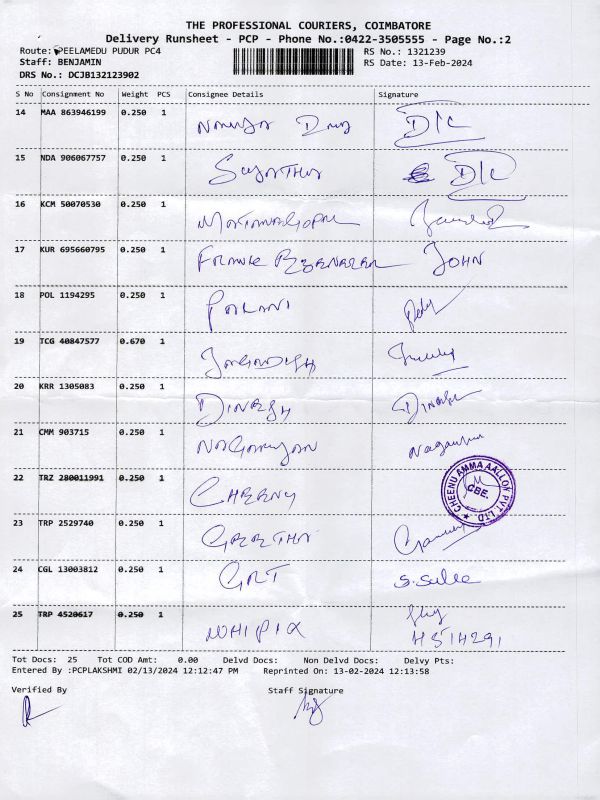 THE PROFESSIONAL COURIERS, COIMBATORE
Delivery Runsheet - PCP - Phone No.:0422-3505555 - Page No.:2
Route: PEELAMEDU PUDUR PC4 RS No.: 1321239
Staff: BENJAMIN RS Date: 13-Feb-2024
DRS No.: DCJB132123902
S No Consignment No Weight PCS Consignee Details Signature
14 MAA 863946199 0.250 1 D/C
15 NDA 906067757 0.250 1 SUJATHA D/C
16 KCM 50070530 0.250 1
17 KUR 695660795 0.250 1 JOHN
18 POL 1194295 0.250 1 PALANI
19 TCG 40847577 0.670 1 JAGADISH
20 KRR 1305083 0.250 1 DINESH DINESH
21 CMM 903715 0.250 1
22 TRZ 280011991 0.250 1 CHEENU
CHEENU AMMA AALLOK PVT LTD
CBE.
23 TRP 2529740 0.250 1 GEETHA
24 CGL 13003812 0.250 1 GRT
25 TRP 4520617 0.250 1
Tot Docs: 25 Tot COD Amt: 0.00 Delvd Docs: Non Delvd Docs: Delvy Pts:
Entered By :PCPLAKSHMI 02/13/2024 12:12:47 PM Reprinted On: 13-02-2024 12:13:58
Verified By Staff Signature